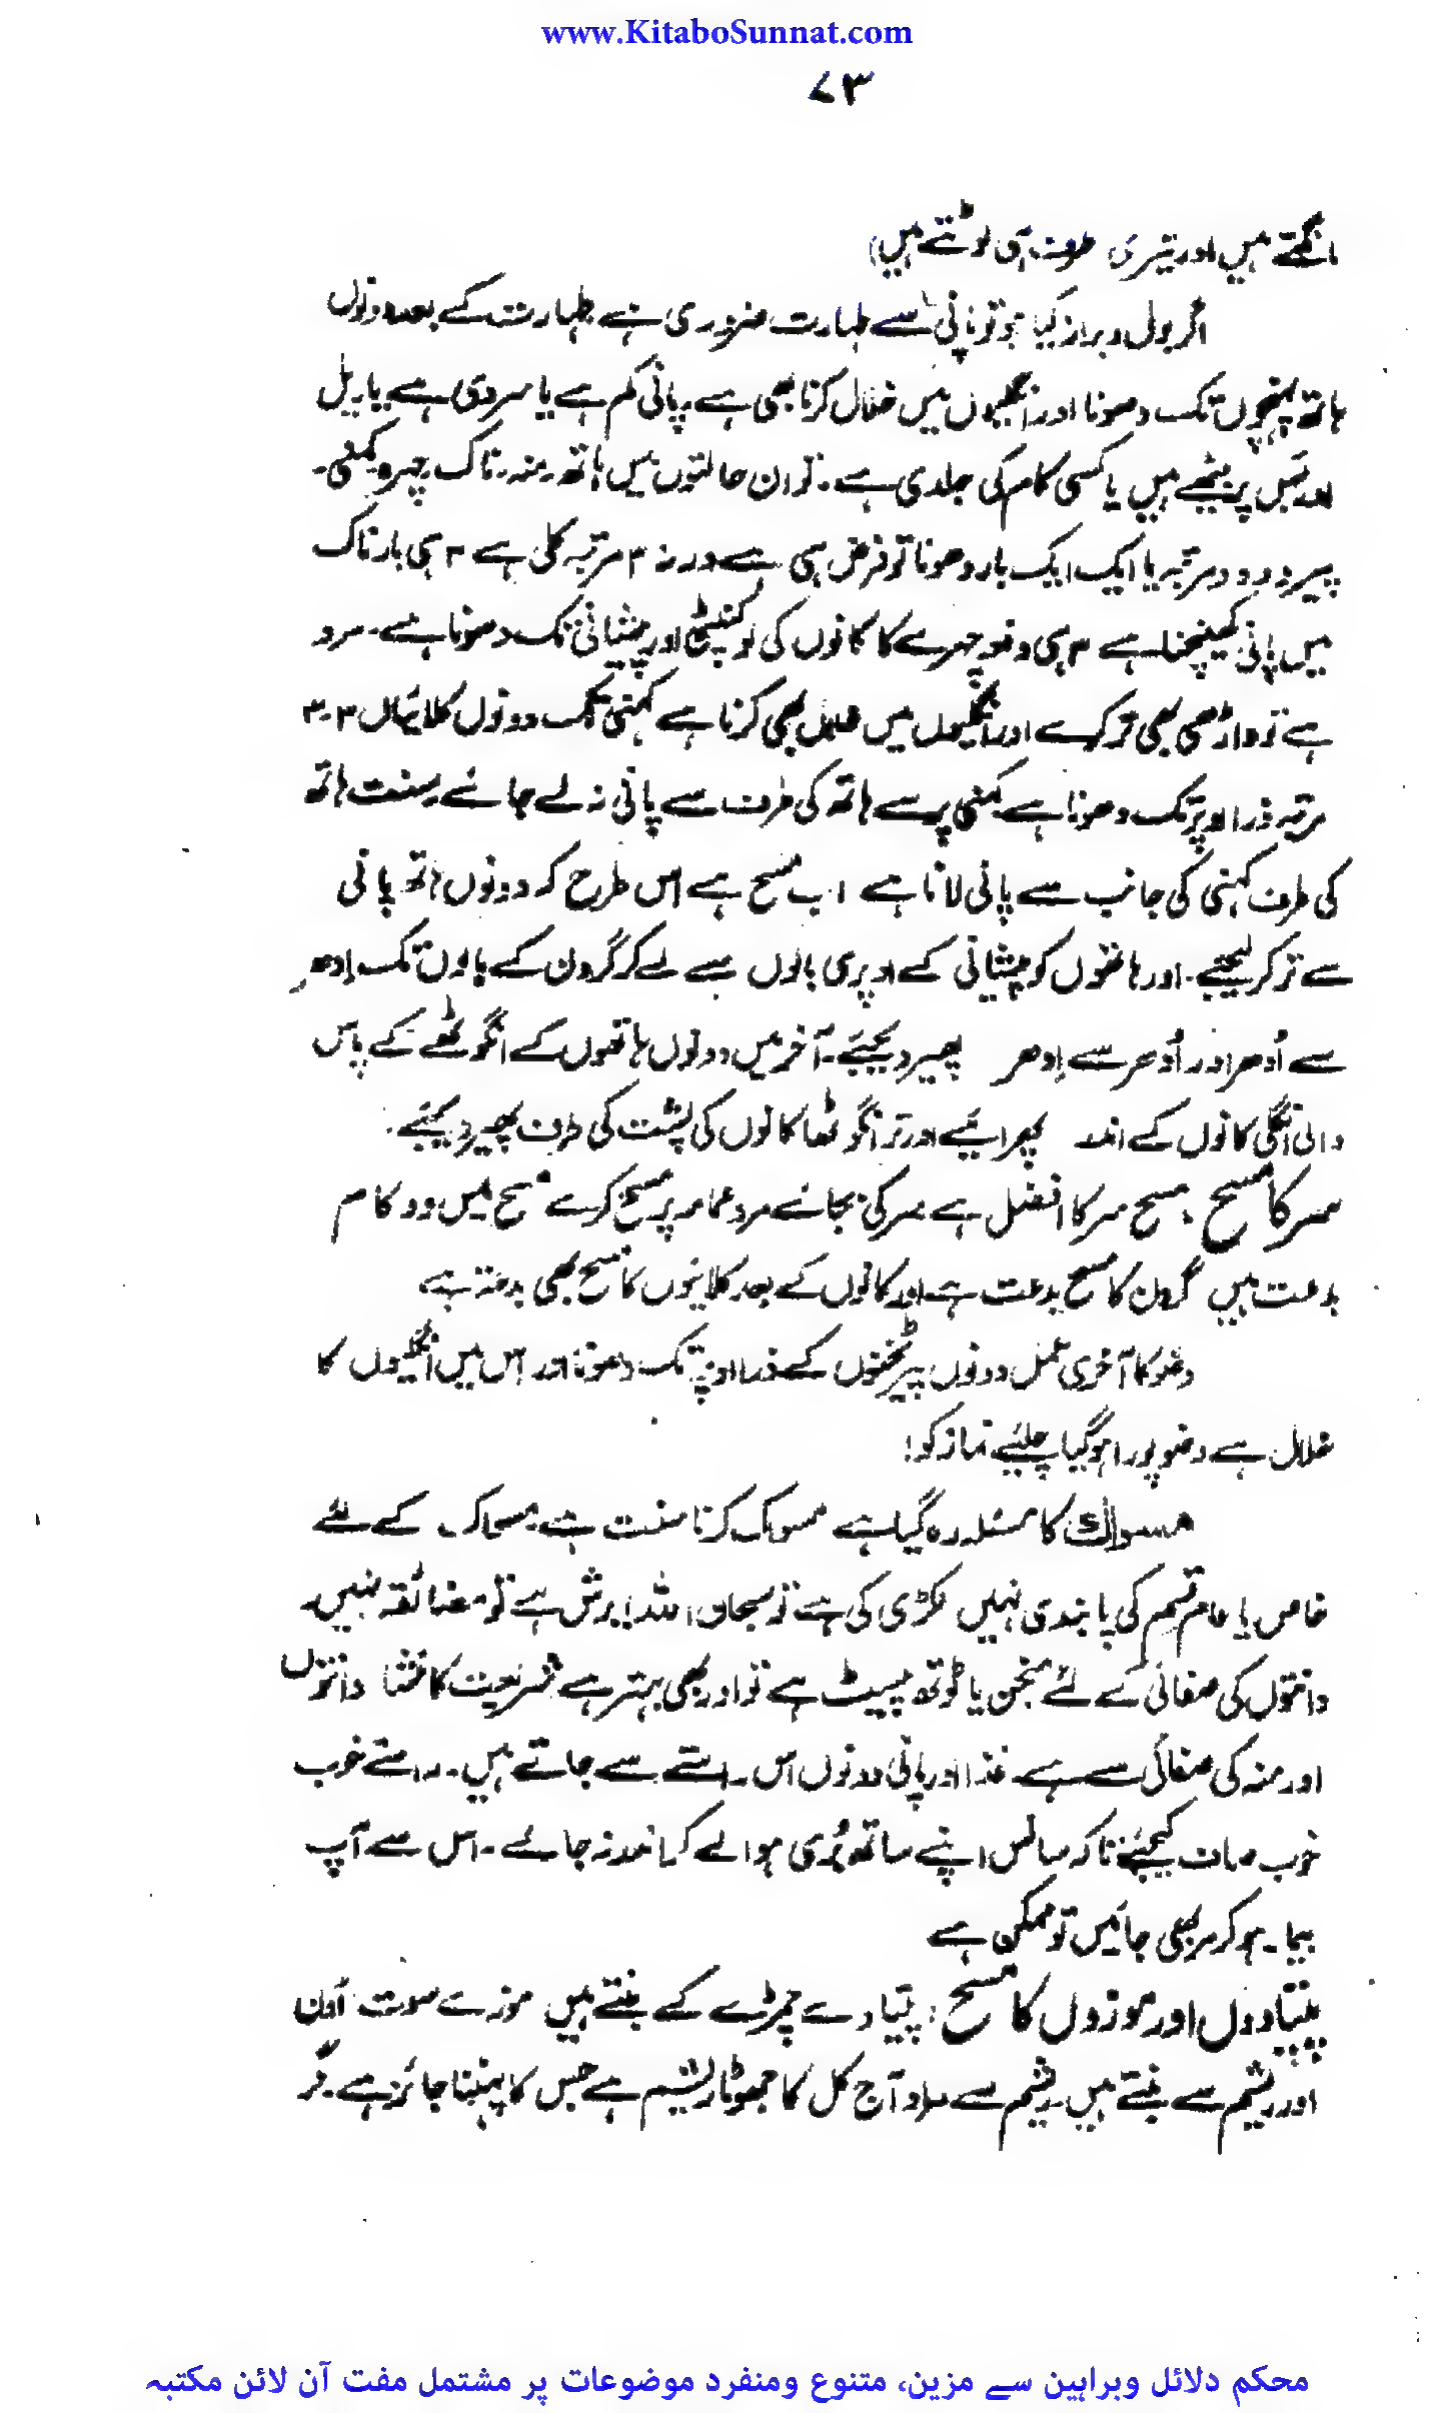 www.KitaboSunnat.com
۷۳
مانگتے ہیں اور تیری طرف ہی لوٹتے ہیں)
اگر بول و براز کیا ہو تو پانی سے طہارت ضروری ہے طہارت کے بعد دونوں
ہاتھ پہنچوں تک دھونا اور انگلیوں میں خلال کرنا بھی ہے۔ پانی کم ہے یا سردی ہے یا ریل
اور بس پر بیٹھے ہیں یا کسی کام کی جلدی ہے۔ تو ان حالتوں میں ہاتھ۔ منہ۔ ناک چہرہ کہنی۔
پیر دو دو مرتبہ یا ایک ایک بار دھونا تو فرض ہی ہے ورنہ ۳ مرتبہ کلی ہے ۳ ہی بار ناک
میں پانی کھینچنا ہے ۳ ہی دفعہ چہرے کا کانوں کی لو کنپٹی اور پیشانی تک دھونا ہے۔ مرد
ہے تو داڑھی بھی تر کرے اور انگلیوں میں خلال بھی کرنا ہے کہنی تک دونوں کلائیاں ۳۔۳
مرتبہ ذرا اوپر تک دھونا ہے کہنی پر سے ہاتھ کی طرف سے پانی نہ لے جائے سنت ہاتھ
کی طرف کہنی کی جانب سے پانی لانا ہے اب مسح ہے اس طرح کہ دونوں ہاتھ پانی
سے تر کر لیجیے۔ اور ہاتھوں کو پیشانی کے اوپری بالوں سے لے کر گردن کے بالوں تک اِدھر
سے اُدھر اور اُدھر سے اِدھر پھیر دیجیئے۔ آخر میں دونوں ہاتھوں کے انگوٹھے کے پاس
والی انگلی کانوں کے اندر پھرائیے اور تر انگوٹھا کانوں کی پشت کی طرف پھیر دیجئے۔
سر کا مسح : مسح سر کا افضل ہے سر کی بجائے مرد عمامہ پر مسح کرے مسح میں دو کام
بدعت ہیں گردن کا مسح بدعت ہے اور کانوں کے بعد کلائیوں کا مسح بھی بدعت ہے
وضو کا آخری عمل دونوں پیر ٹخنوں کے ذرا اوپر تک دھونا اور اس میں انگلیوں کا
خلال ہے وضو پورا ہوگیا چلیئے نماز کو!
مسواک کا مسئلہ رہ گیا ہے مسواک کرنا سنت ہے مسواک کے لئے
خاص یا عام قسم کی پابندی نہیں لکڑی کی ہے تو سبحان اللہ! برش ہے تو مضائقہ نہیں۔
دانتوں کی صفائی کے لئے منجن یا ٹوتھ پیسٹ ہے تو اور بھی بہتر ہے شریعت کا منشا دانتوں
اور منہ کی صفائی سے ہے غذا اور پانی دونوں اس راستے سے جاتے ہیں۔ راستے خوب
خوب صاف کیجئے تاکہ سانس اپنے ساتھ بُری ہوا لے کر اندر نہ جائے۔ اس سے آپ
بیمار ہوکر مر بھی جائیں تو ممکن ہے
پیتادوں اور موزوں کا مسح : پیتادے چمڑے کے بنتے ہیں موزے سوت اُون
اور ریشم سے بنتے ہیں۔ ریشم سے مراد آج کل کا جھوٹا ریشم ہے جس کا پہننا جائز ہے۔ گر
محکم دلائل وبراہین سے مزین، متنوع ومنفرد موضوعات پر مشتمل مفت آن لائن مکتبہ